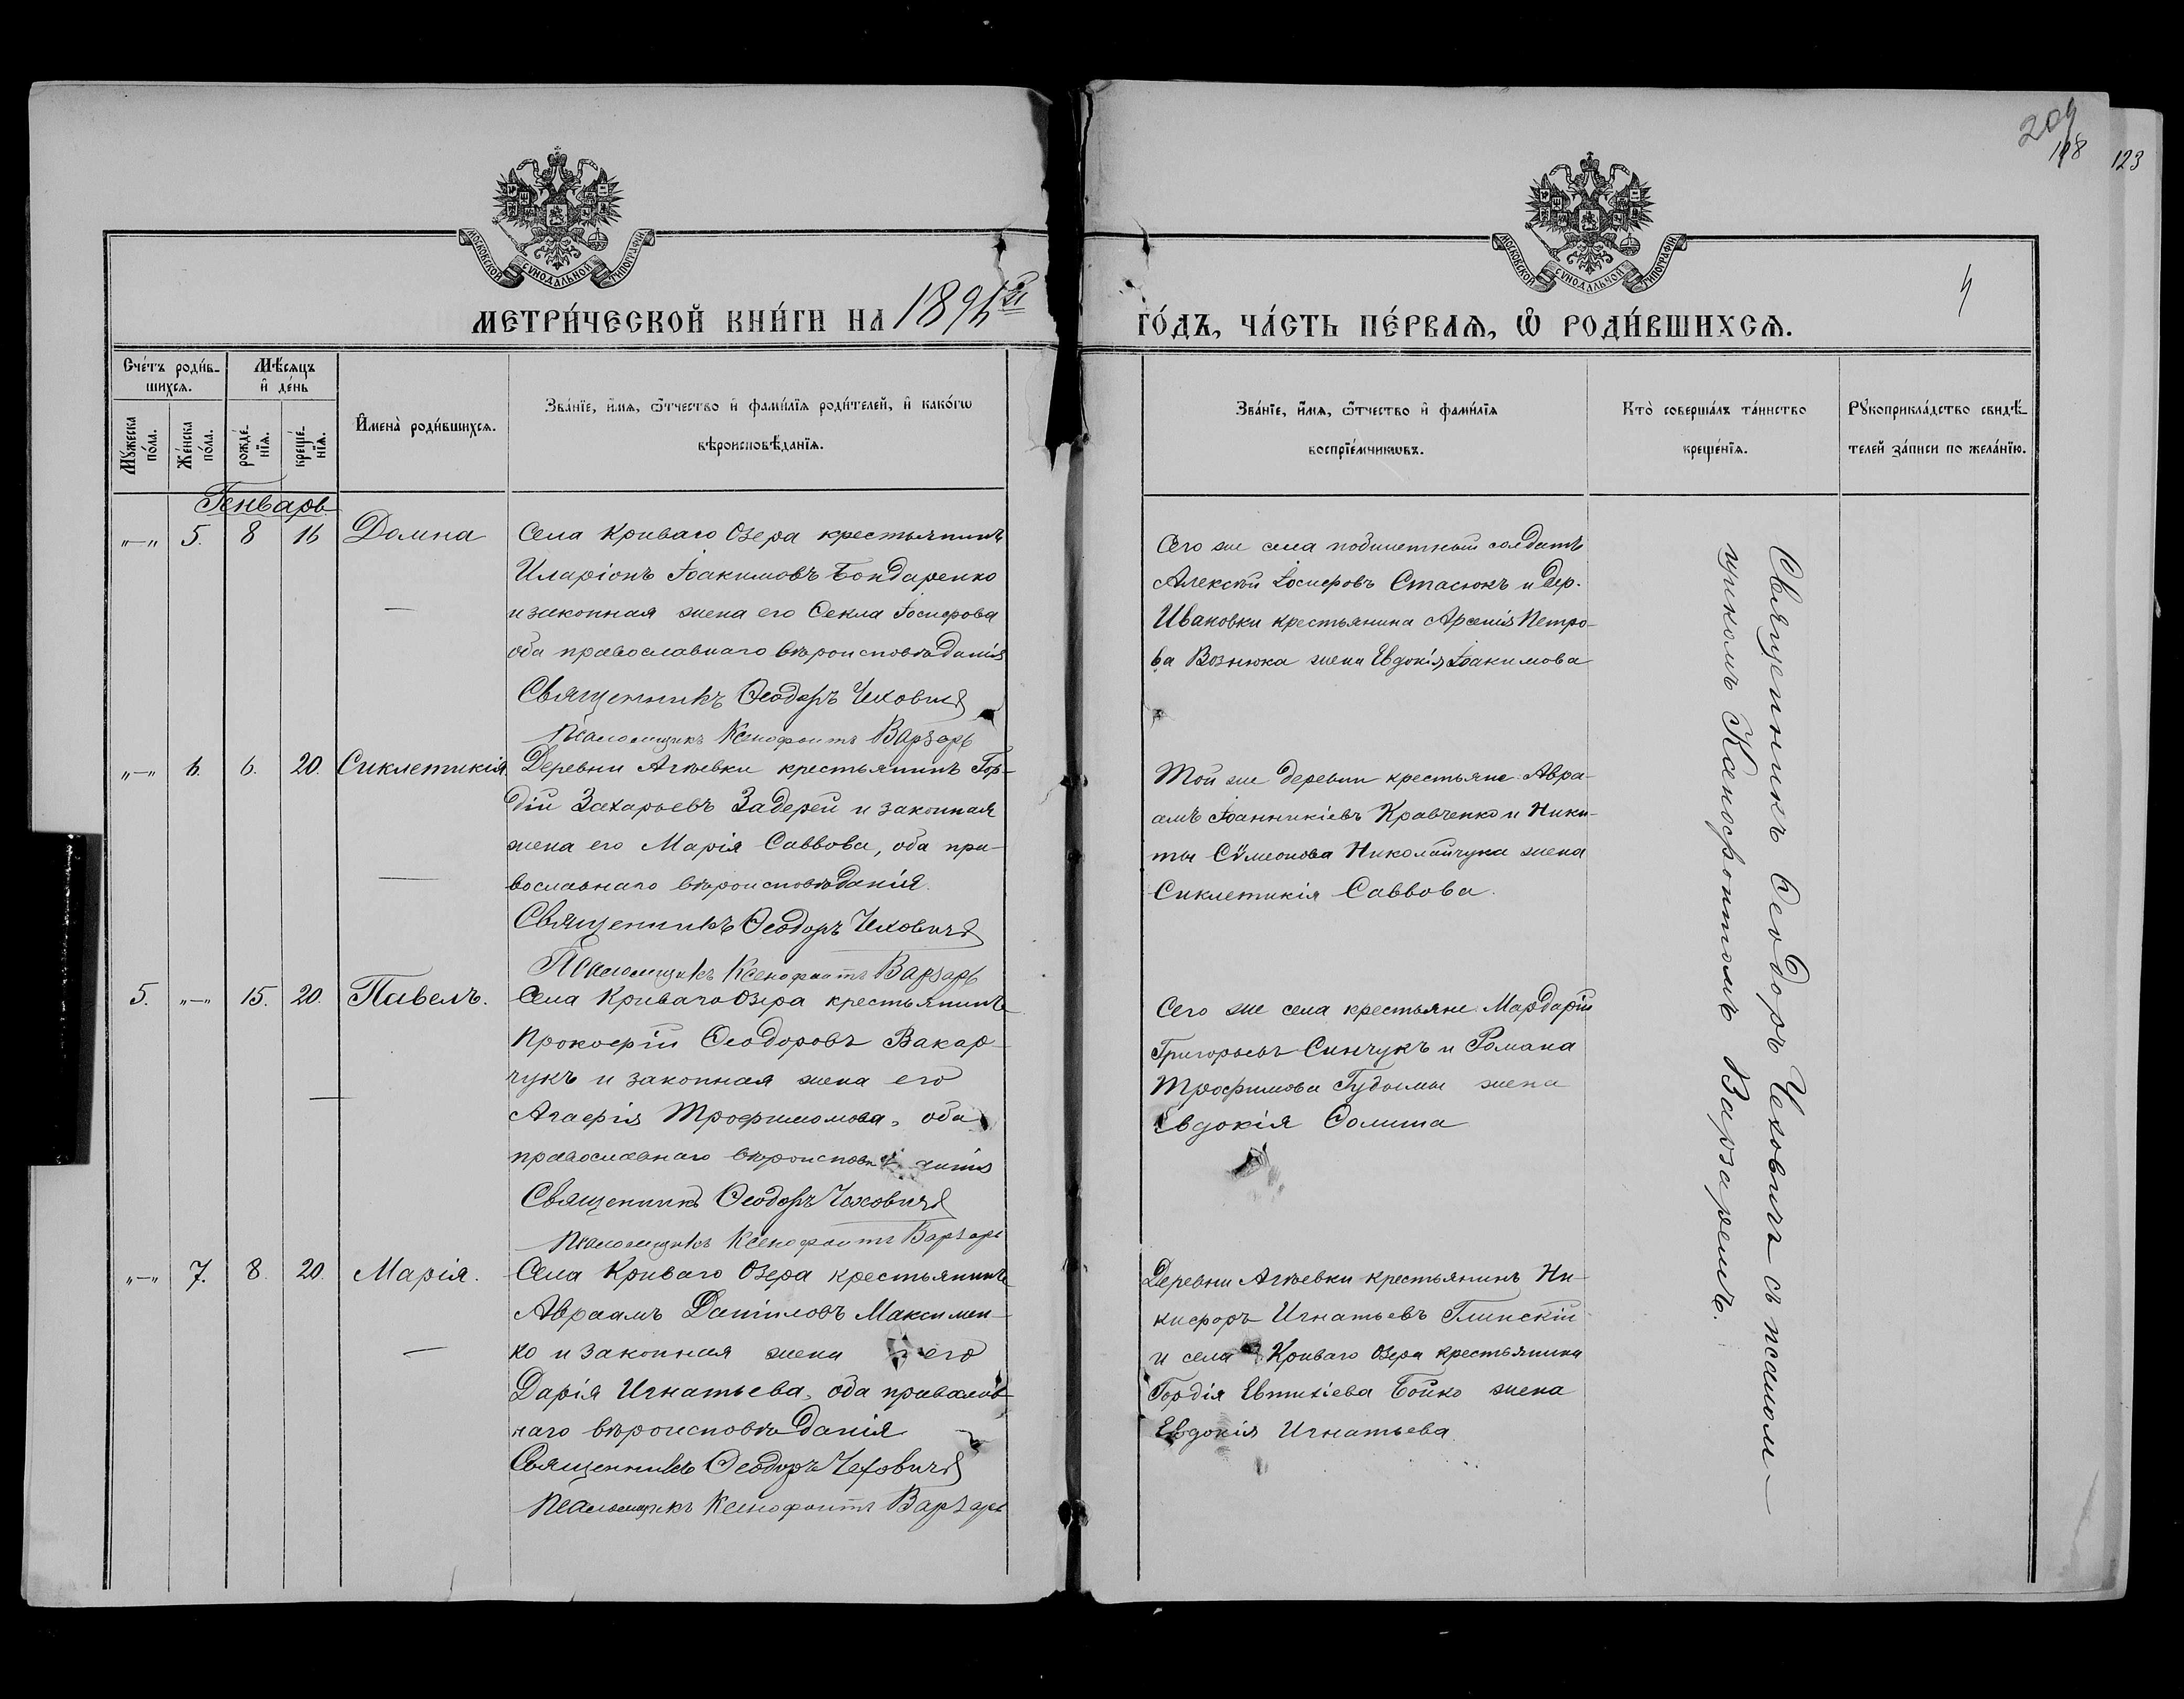 209
118
123
МОСКОВСКОЙ СѴНОДАЛЬНОЙ ТИПОГРАФІИ
МОСКОВСКОЙ СѴНОДАЛЬНОЙ ТИПОГРАФІИ
4
МЕТРИ́ЧЕСКОЙ КНИ́ГИ НА 189
ГО́ДЪ, ЧА́СТЬ ПЕ́РВАѦ, Ѡ҆ РОДИ́ВШИХСѦ.
Сче́тъ роди́в-
шихсѧ.
Мѣ́сѧцъ
и҆ де́нь
Мꙋ́жеска по́ла.
Же́нска по́ла.
рожде́-
нїѧ.
креще́-
нїѧ.
И҆мена̀ роди́вшихсѧ.
Зва́нїе, и҆́мѧ, ѻ҆́тчество и҆ фами́лїѧ роди́телей, и҆ како́гѡ
вѣроисповѣ́данїѧ.
Зва́нїе, и҆́мѧ, ѻ҆́тчество и҆ фами́лїѧ
воспрїе́мникѡвъ.
Кто̀ соверша́лъ та́инство
креще́нїѧ.
Рꙋкоприкла́дство свидѣ́-
телей за́писи по жела́нїю.
Генварь
„—„ 5. 8 16 Домна
Села Криваго Озера крестьянинъ
Иларіонъ Іоакимовъ Бондаренко
и законная жена его Ѳекла Іосифова
оба православнаго вѣроисповѣданія
Священникъ Ѳеодоръ Чеховичъ
Псаломщикъ Ксенофонтъ Варзарь
Сего же села побилетный солдатъ
Алексѣй Іосифовъ Стасюкъ и дер.
Ивановки крестьянина Арсенія Петро-
ва Вознюка жена Евдокія Іоакимова
„—„ 6. 6. 20. Сиклетикія
Деревни Агѣевки крестьянинъ Гор-
дій Захарьевъ Задерей и законная
жена его Марія Саввова, оба пра-
вославнаго вѣроисповѣданія.
Священникъ Ѳеодоръ Чеховичъ
Псаломщикъ Ксенофонтъ Варзарь
Той же деревни крестьяне Авра-
амъ Іоанникіевъ Кравченко и Ники-
ты Сѵмеонова Николайчука жена
Сиклетикія Саввова.
5. „—„ 15. 20. Павелъ.
Села Криваго Озера крестьянинъ
Прокофій Ѳеодоровъ Вакар-
чукъ и законная жена его
Агафія, оба
православнаго
Священникъ Ѳеодоръ Чеховичъ
Псаломщикъ Ксенофонтъ Варзарь
Сего же села крестьяне Мардарій
Григорьевъ Синчукъ и Романа
Трофимова Гудымы жена
Евдокія Ѳомина
„—„ 7. 8. 20. Марія.
Села Криваго Озера крестьянинъ
Авраамъ Даніиловъ Максимен-
ко и законная жена его
Дарія Игнатьева, оба православ-
наго вѣроисповѣданія
Священникъ Ѳеодоръ Чеховичъ
Псаломщикъ Ксенофонтъ Варзарь
Деревни Агѣевки крестьянинъ Ни-
кифоръ Игнатьевъ Глинскій
и села Криваго Озера крестьянина
Гордія Евтихіева Бойко жена
Евдокія Игнатьева
Священникъ Ѳеодоръ Чеховичъ съ псалом-
щикомъ Ксенофонтомъ Варзаремъ.